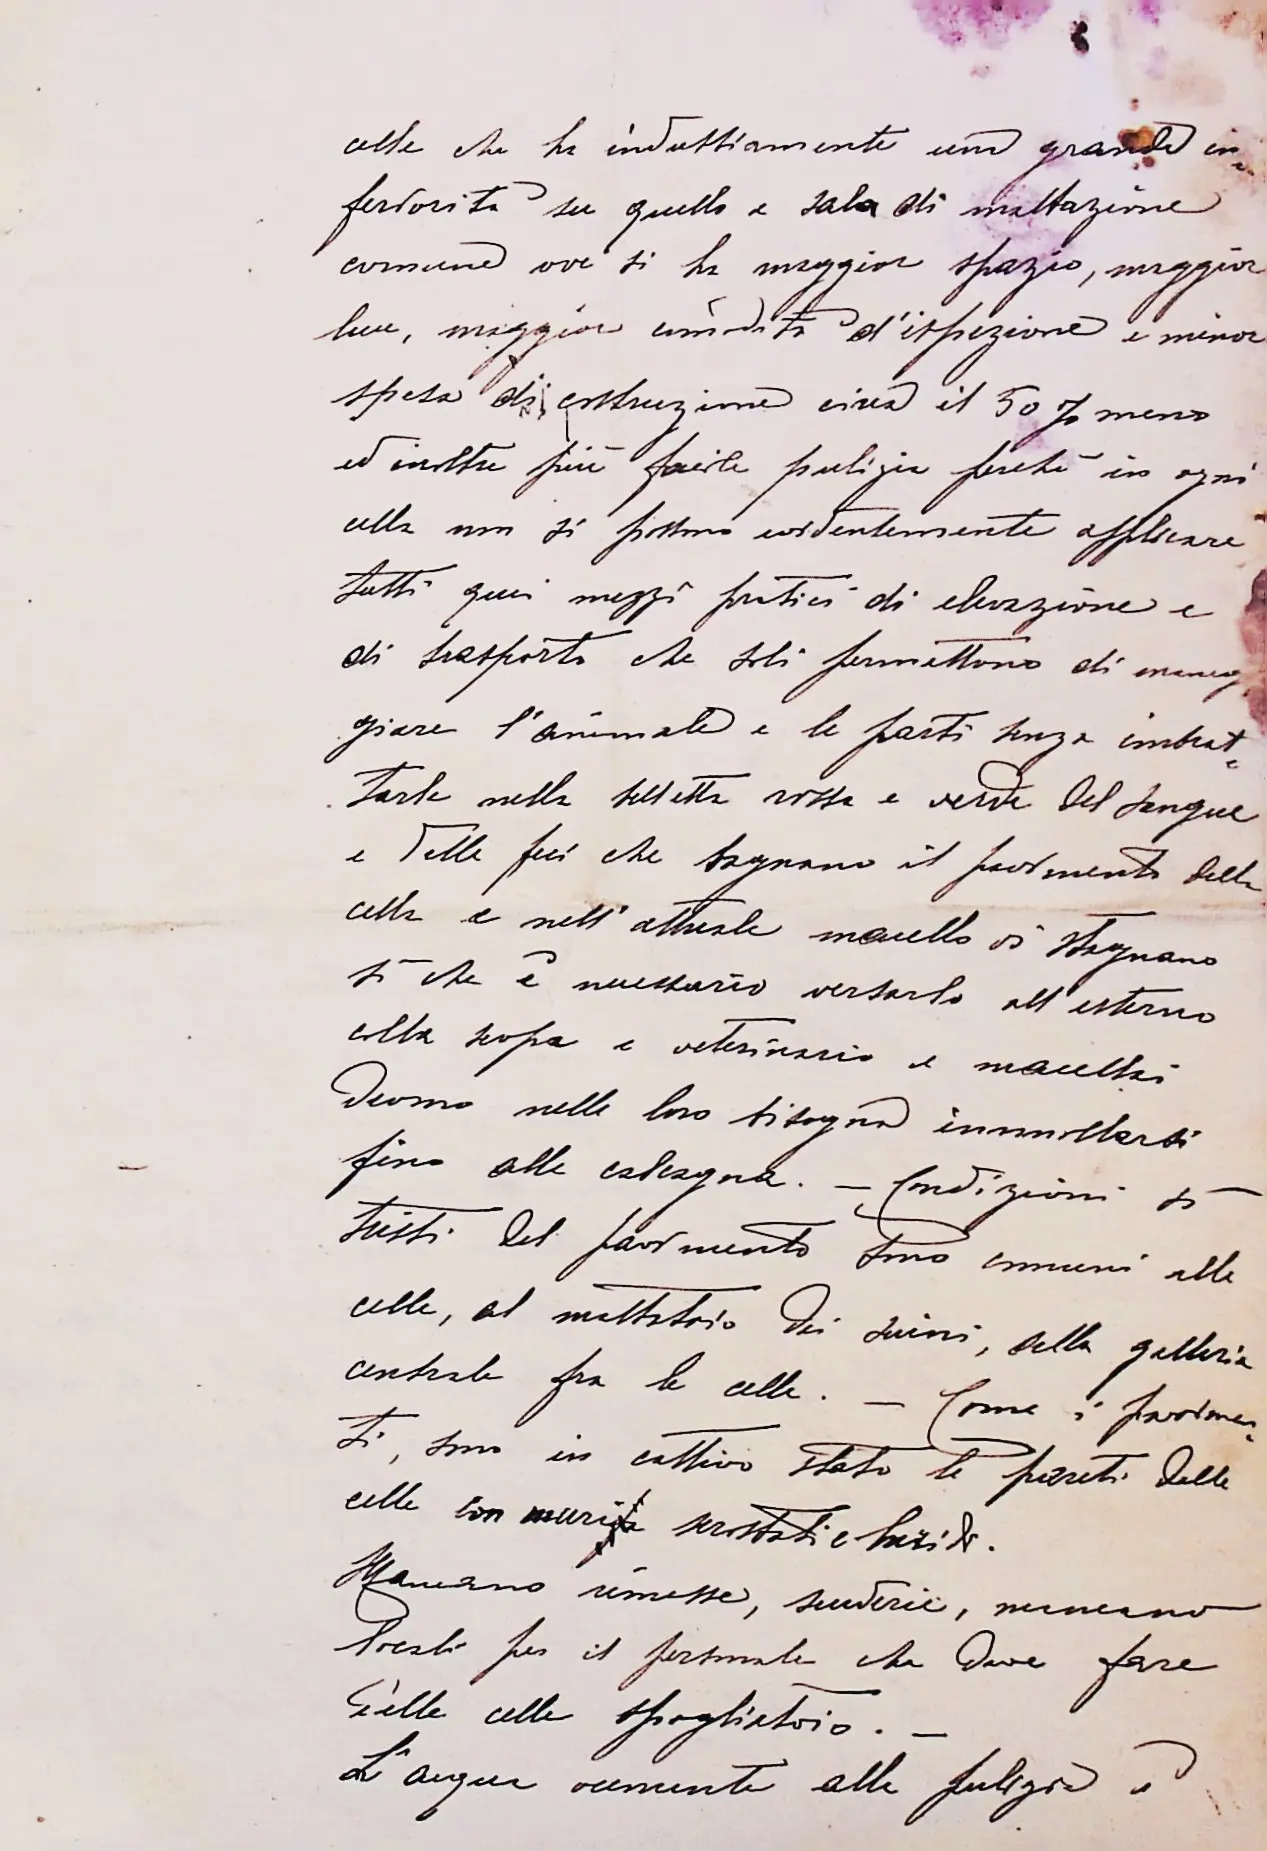 celle che ha indubbiamente una grande in-
feriorità su quello a sala di mattazione
comune ove si ha maggior spazio, maggior
luce, maggior comodità d'ispezione e minor
spesa di costruzione circa il 50 % meno
ed inoltre più facile pulizia perchè in ogni
cella non si possono evidentemente applicare
tutti quei mezzi pratici di elevazione e
di trasporto che soli permettono di maneg
giare l'animale e le parti senza imbrat-
tarle nella belletta rossa e verde del sangue
e delle feci che bagnano il pavimento della
cella e nell'attuale macello vi stagnano
sì che è necessario versarlo all'esterno
colla scopa e veterinario e macellai
devono nelle loro bisogna inmollarsi
fino alle calcagna. — Condizioni sì
tristi del pavimento sono comuni alle
celle, al mattatoio dei suini, alla galleria
centrale fra le celle. — Come i pavimen-
ti, sono in cattivo stato le pareti delle
celle con muri scrostati e luridi.
Mancano rimesse, scuderie, mancano
locali per il personale che deve fare
delle celle spogliatoio. —
L'acqua occorrente alla pulizia è